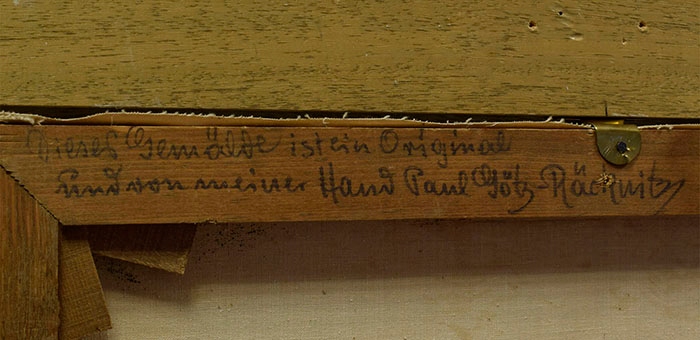 Dieses Gemälde ist ein Original
und von meiner Hand Paul Götz-Räcknitz